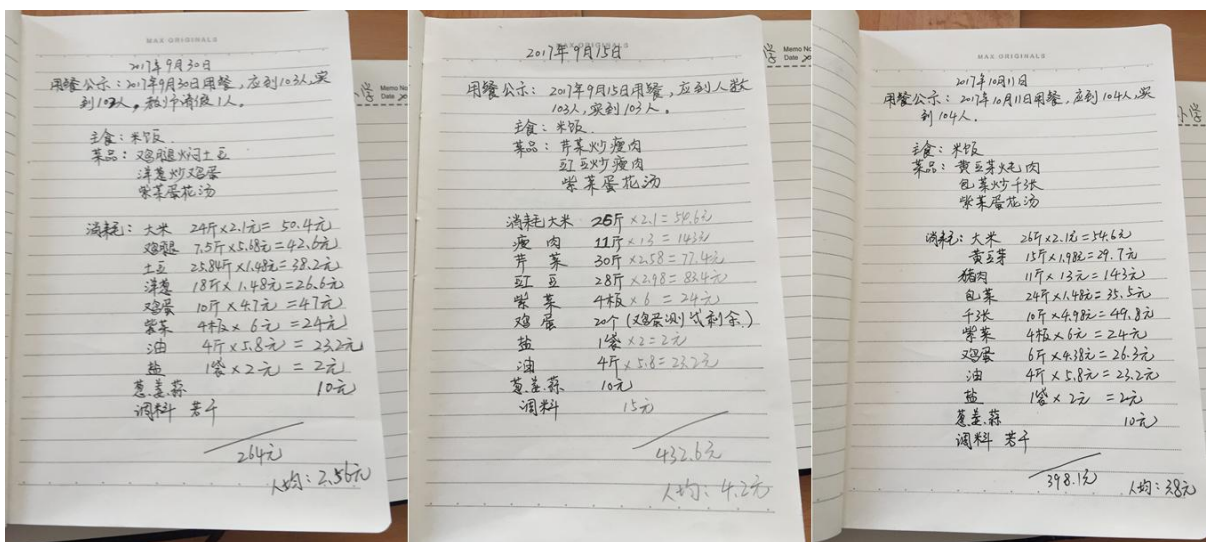 MAX ORIGINALS
2017年9月30日
用餐公示：2017年9月30日用餐，应到103人，实
到102人。教师请假1人。
主食：米饭
菜品：鸡腿焖土豆
洋葱炒鸡蛋
紫菜蛋花汤
消耗：大米 24斤×2.1元=50.4元
鸡腿 7.5斤×5.68元=42.6元
土豆 25.84斤×1.48元=38.2元
洋葱 18斤×1.48元=26.6元
鸡蛋 10斤×4.7元=47元
紫菜 4板×6元=24元
油 4斤×5.8元=23.2元
盐 1袋×2元=2元
葱.姜.蒜 10元
调料 若干
264元
人均：2.56元
学
Memo No
Date
MAX ORIGINALS
2017年9月15日
用餐公示：2017年9月15日用餐，应到人数
103人，实到103人。
主食：米饭.
菜品：芹菜炒瘦肉
豇豆炒瘦肉
紫菜蛋花汤
消耗大米 26斤×2.1=54.6元
瘦肉 11斤×13=143元
芹菜 30斤×2.58=77.4元
豇豆 28斤×2.98=83.4元
紫菜 4板×6=24元
鸡蛋 20个(鸡蛋测试剩余)
盐 1袋×2=2元
油 4斤×5.8=23.2元
葱姜蒜 10元
调料 15元
432.6元
人均：4.2元
学
Memo No
Date
MAX ORIGINALS
2017年10月11日
用餐公示：2017年10月11日用餐，应到104人，实
到104人.
主食：米饭
菜品：黄豆芽炖肉
包菜炒千张
紫菜蛋花汤
消耗：大米 26斤×2.1元=54.6元
黄豆芽 15斤×1.98元=29.7元
猪肉 11斤×13元=143元
包菜 24斤×1.48元=35.5元
千张 10斤×4.98元=49.8元
紫菜 4板×6元=24元
鸡蛋 6斤×4.38元=26.3元
油 4斤×5.8元=23.2元
盐 1袋×2元=2元
葱.姜.蒜 10元
调料 若干
398.1元
人均：3.8元
小学